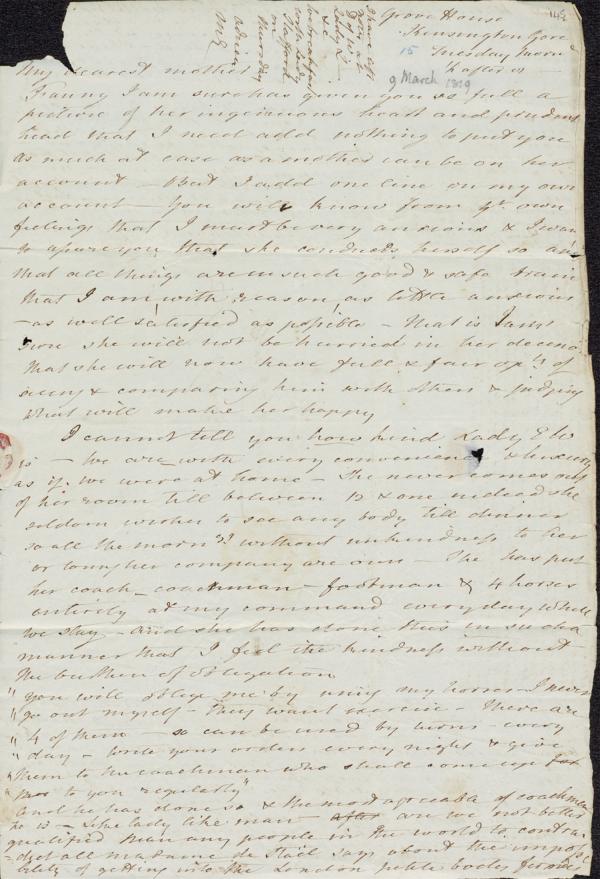 148
Grove House
Kensington Gore
15 Tuesday morn
9 March 1819
I have aff
Lady
Stafford
on
Thursday
adieu
ME
My dearest mother
Fanny I am sure has given you so full a
picture of her ingenuous heart and prudent
head that I need add nothing to put you
as much at ease as a mother can be on her
account – But I add one line on my own
account – You will know from yr. own
feelings that I must be very anxious & I want
to assure you that she conducts herself so and
that all things are in such good & safe train
that I am, with reason, as little anxious
– as well satisfied as possible – that is I am
sure she will not be hurried in her decision
that she will now have full & fair opy. of
seeing & comparing him with others & judging
what will make her happy
I cannot tell you how kind Lady E W
is – We are with every convenience & luxury
as if we were at home – She never comes out
of her room till between 12 & one indeed she
seldom wishes to see any body till dinner
so all the morngs without unkindness to her
or to any her company are our own – She has put
her coach – coachman – footman & 4 horses
entirely at my command every day while
we stay – and she has done this in such a
manner that I feel the kindness without
the burthen of obligation
" you will oblige me by using my horses – I never
" go out myself – they want exercise – There are
" 4 of them – so can be used by turns every
" day – write your orders every night & give
" them to the coachman who shall come up for
" to you regularly"
and he has done so & the most agreeable of coachmen
he is – like lady like man – are we not better
qualified than any people in the world to contra-
-dict all Madame de Stael says about the impos
bility of getting into the London petite bodies